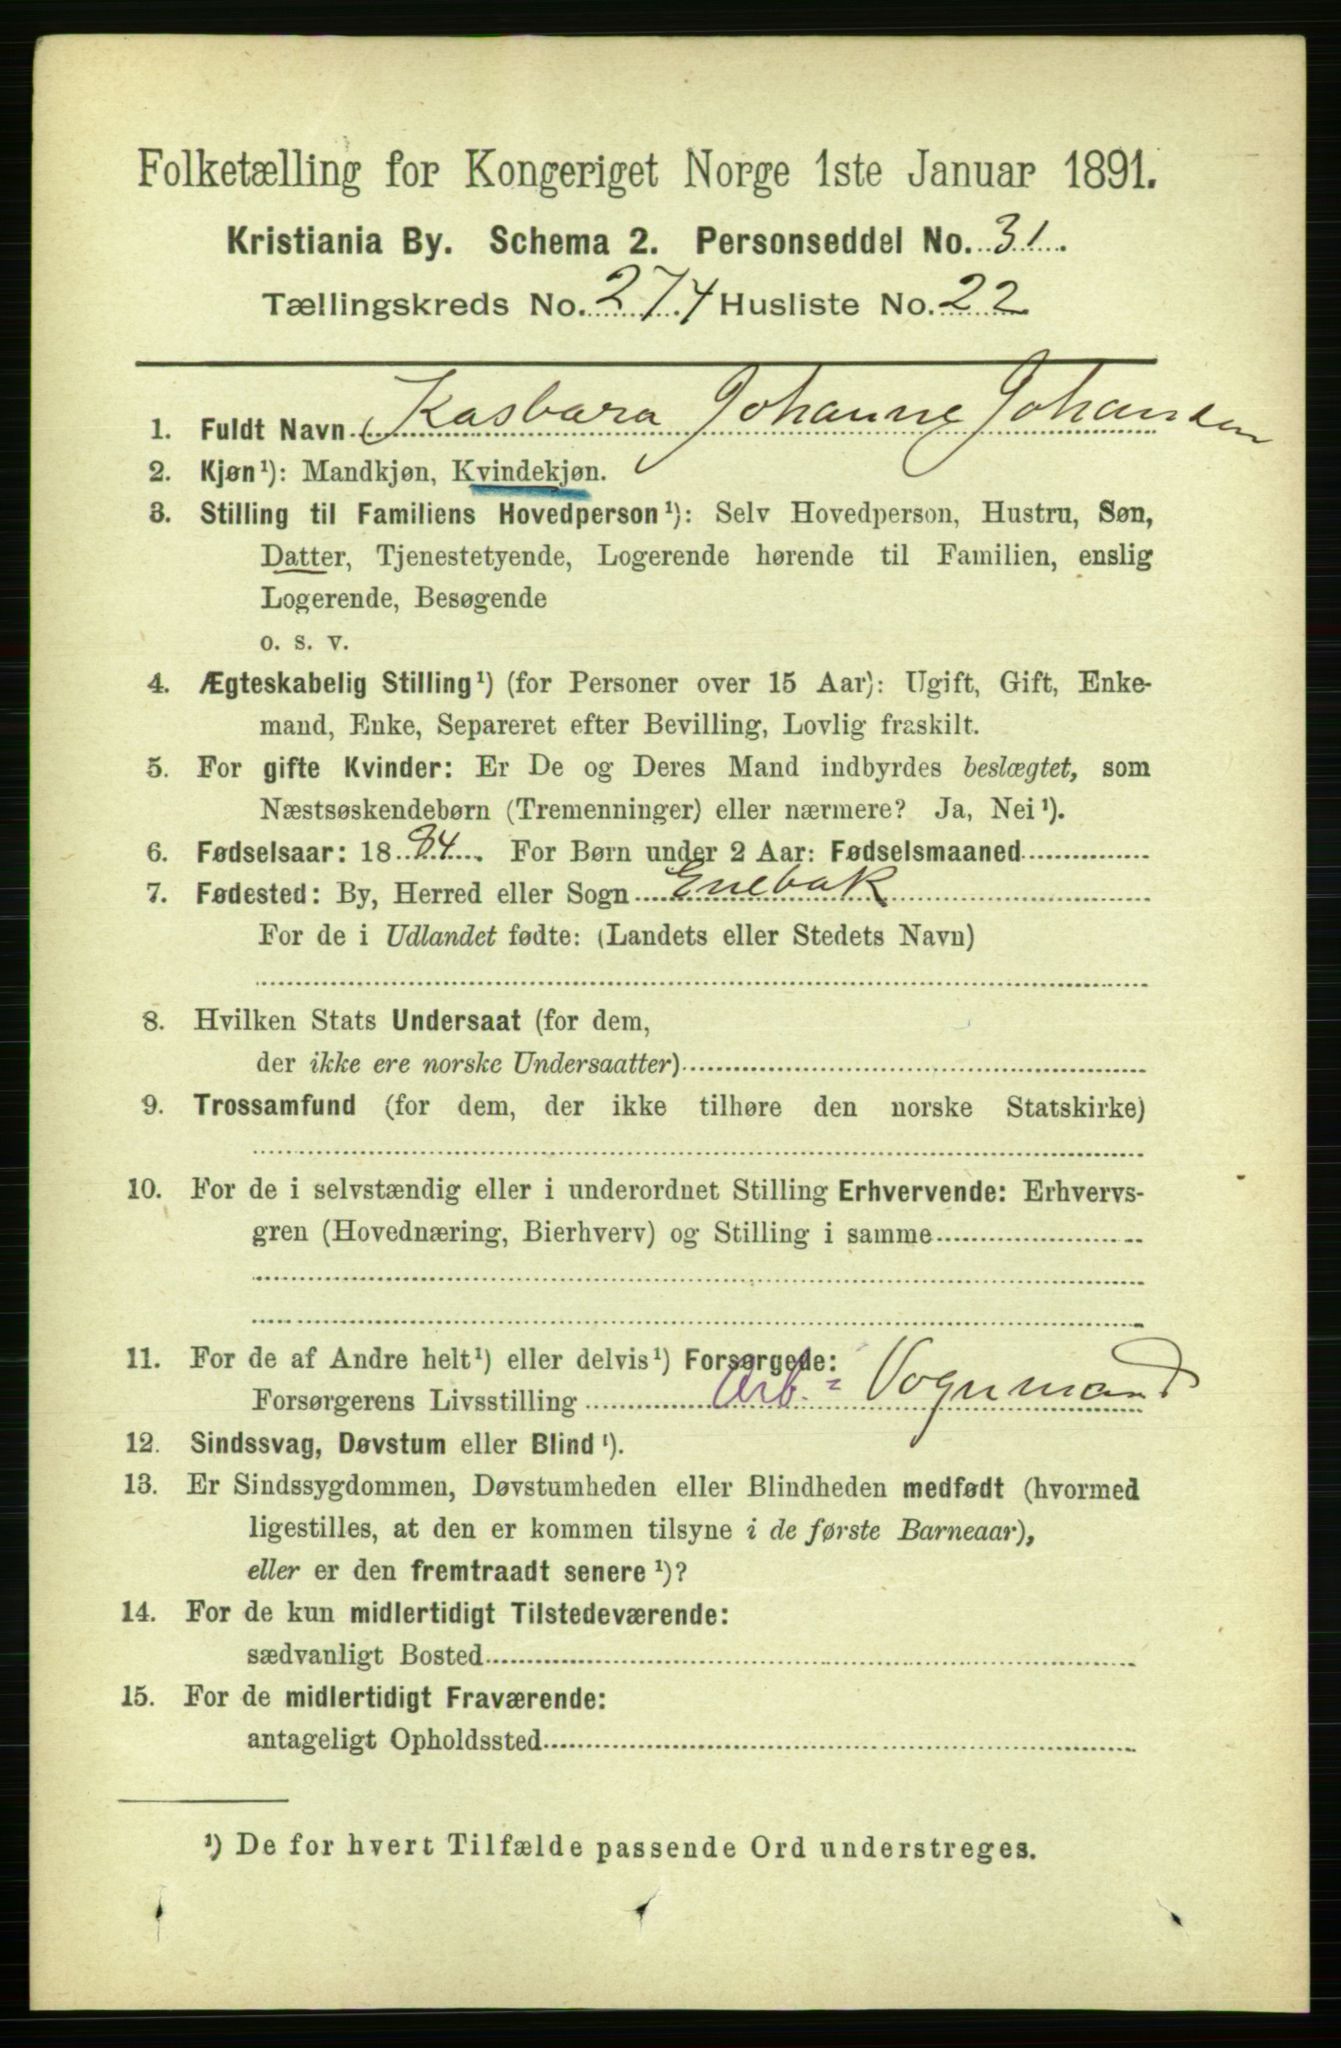 Folketælling for Kongeriget Norge 1ste Januar 1891.
Kristiania By. Schema 2. Personseddel No. 31.
Tællingskreds No. 274 Husliste No. 22
1. Fuldt Navn Kasbara Johanne Johansen
2. Kjøn¹): Mandkjøn, Kvindekjøn.
3. Stilling til Familiens Hovedperson¹): Selv Hovedperson, Hustru, Søn,
Datter, Tjenestetyende, Logerende hørende til Familien, enslig
Logerende, Besøgende
o. s. v.
4. Ægteskabelig Stilling¹) (for Personer over 15 Aar): Ugift, Gift, Enke-
mand, Enke, Separeret efter Bevilling, Lovlig fraskilt.
5. For gifte Kvinder: Er De og Deres Mand indbyrdes beslægtet, som
Næstsøskendebørn (Tremenninger) eller nærmere? Ja, Nei¹).
6. Fødselsaar: 1884. For Børn under 2 Aar: Fødselsmaaned
7. Fødested: By, Herred eller Sogn Enebak
For de i Udlandet fødte: (Landets eller Stedets Navn)
8. Hvilken Stats Undersaat (for dem,
der ikke ere norske Undersaatter)
9. Trossamfund (for dem, der ikke tilhøre den norske Statskirke)
10. For de i selvstændig eller i underordnet Stilling Erhvervende: Erhvervs-
gren (Hovednæring, Bierhverv) og Stilling i samme
11. For de af Andre helt¹) eller delvis¹) Forsørgede:
Forsørgerens Livsstilling Arb.= Vognmand
12. Sindssvag, Døvstum eller Blind¹).
13. Er Sindssygdommen, Døvstumheden eller Blindheden medfødt (hvormed
ligestilles, at den er kommen tilsyne i de første Barneaar),
eller er den fremtraadt senere¹)?
14. For de kun midlertidigt Tilstedeværende:
sædvanligt Bosted
15. For de midlertidigt Fraværende:
antageligt Opholdssted
¹) De for hvert Tilfælde passende Ord understreges.